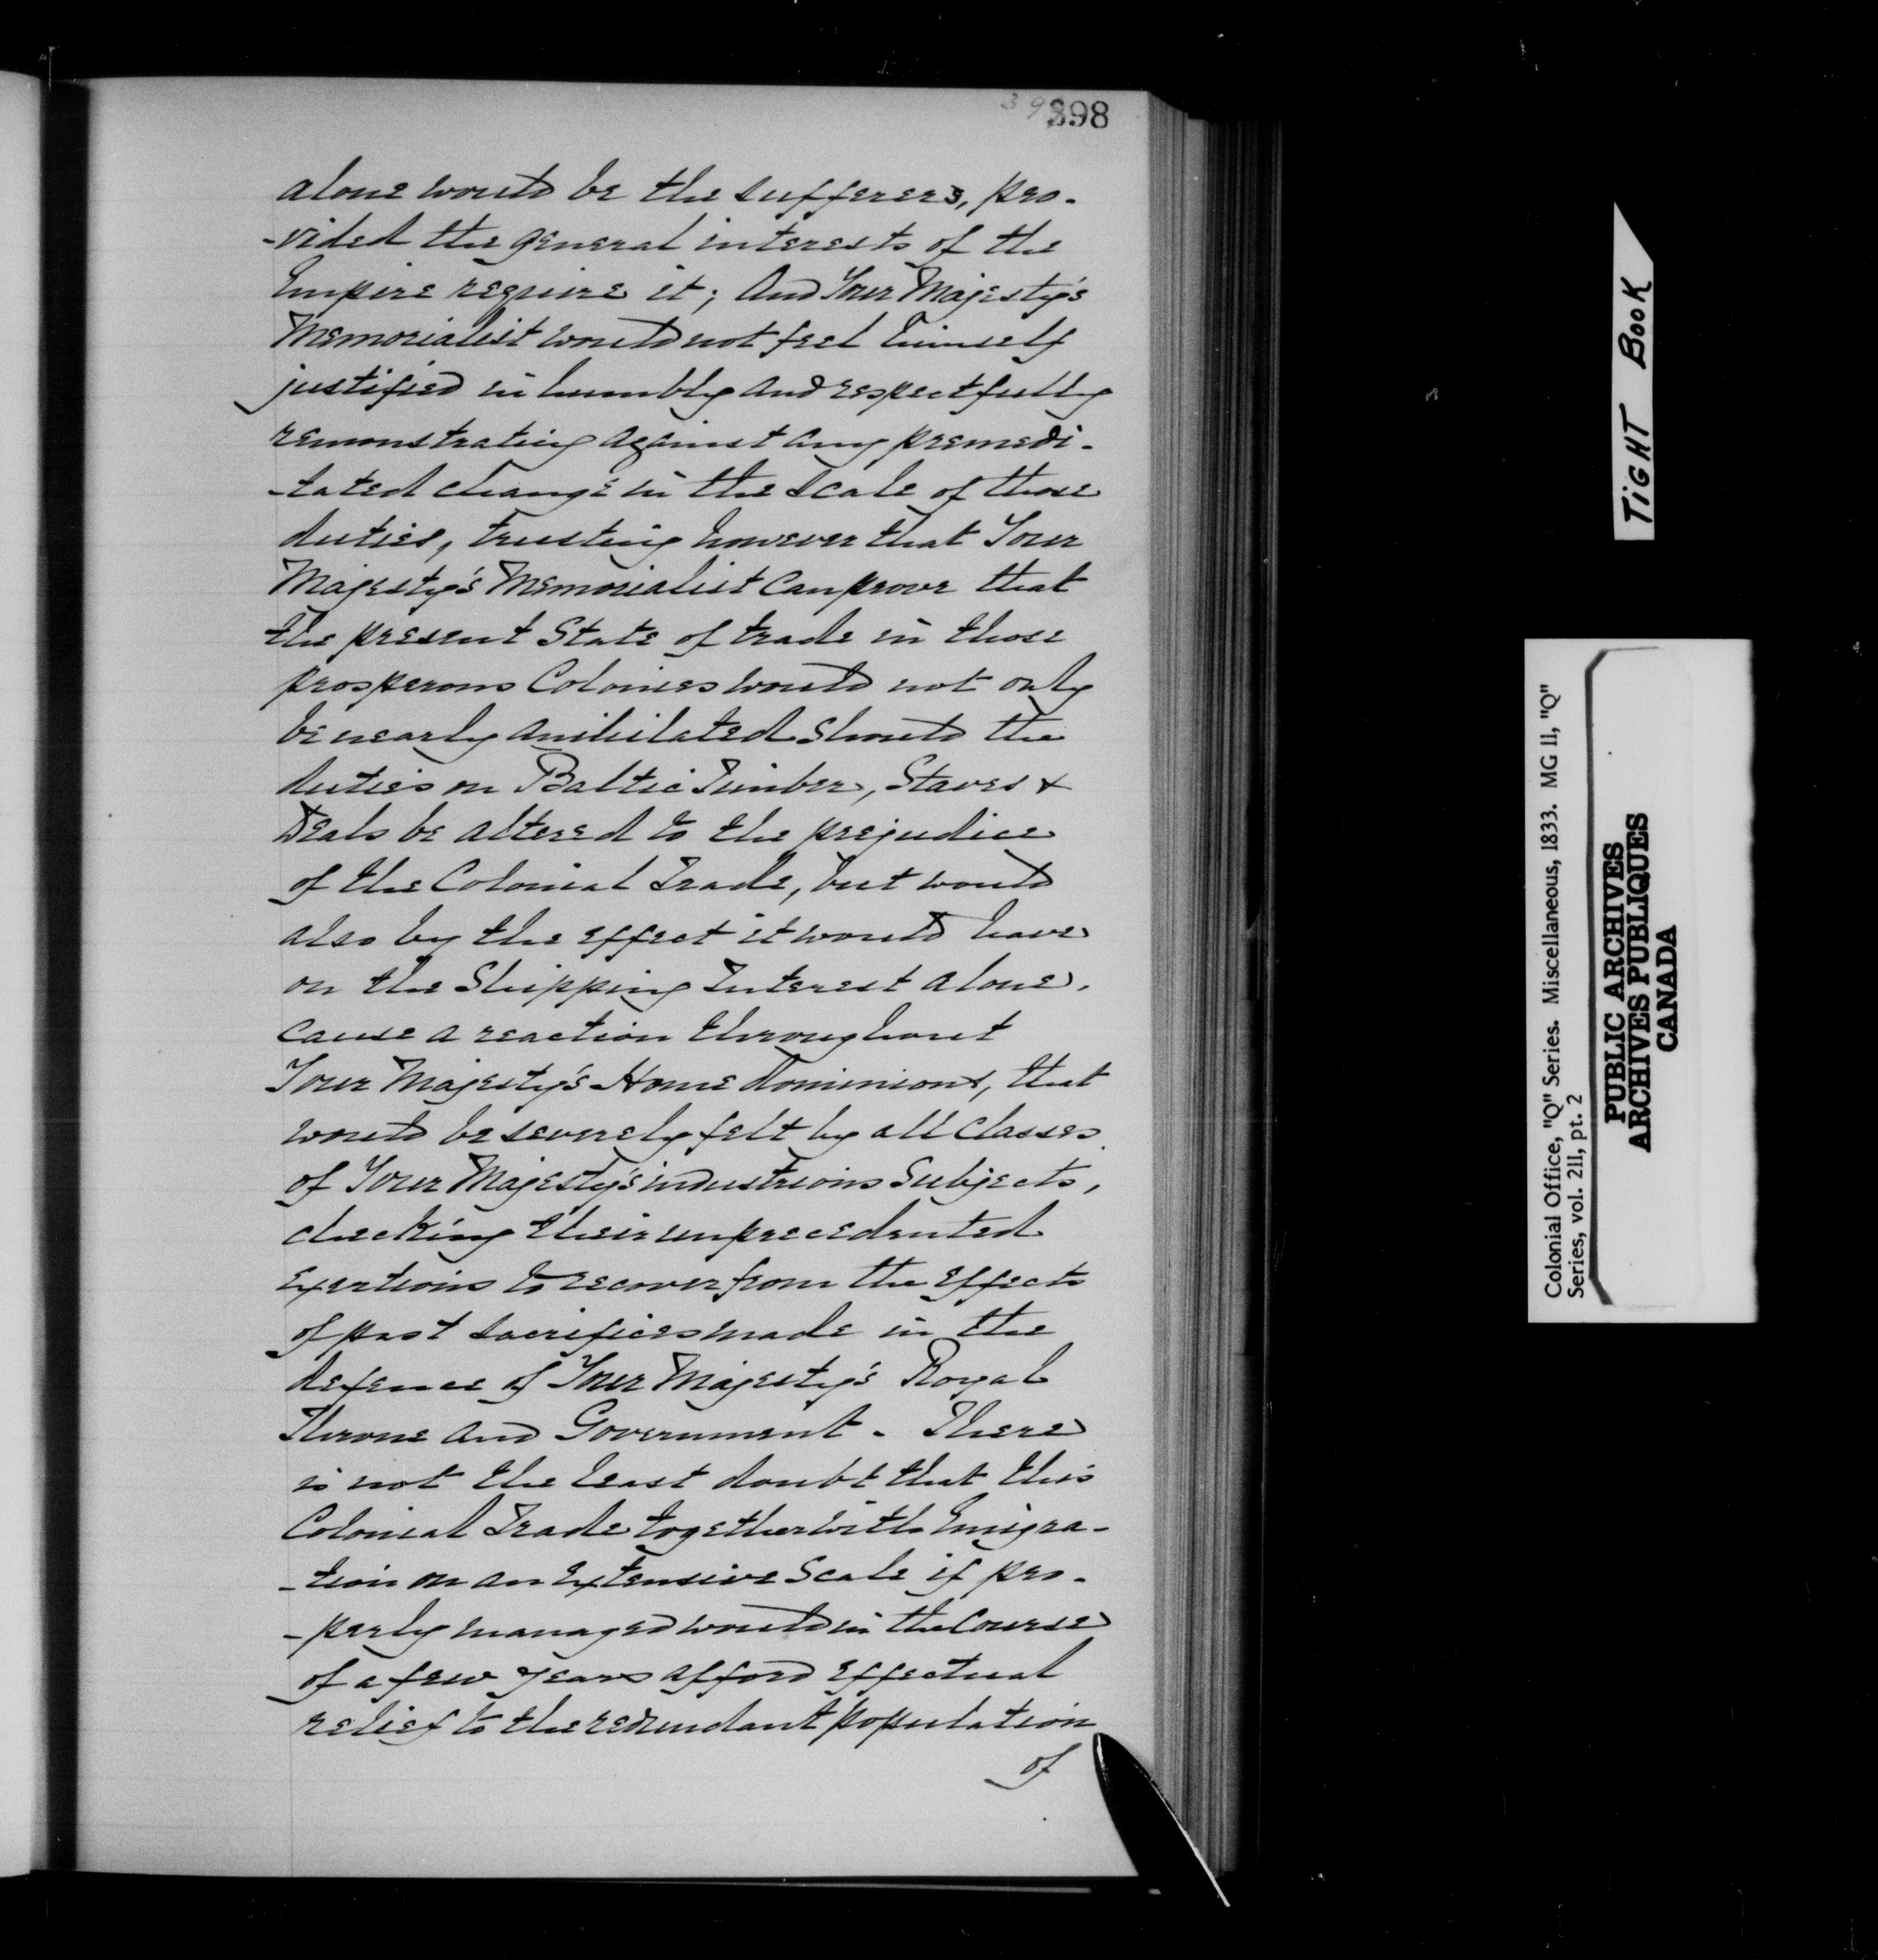 398
alone would be the sufferers, pro-
-vided the general interests of the
Empire require it; And Your Majesty's
Memorialist would not feel himself
justified in humbly and respectfully
remonstrating against any premedi-
-tated change in the scale of those
duties, trusting however that Your
Majesty's Memorialist can prove that
the present State of trade in those
prosperous Colonies would not only
be nearly anihilated should the
duties on Baltic Timber, Staves &
Deals be altered to the prejudice
of the Colonial Trade, but would
also by the effect it would have
on the Shipping Interest alone,
cause a reaction throughout
Your Majesty's Home dominions, that
would be severely felt by all Classes
of Your Majesty's industrious Subjects,
checking their unprecedented
exertions to recover from the effects
of past sacrifices made in the
defence of Your Majesty's Royal
Throne and Government. There
is not the least doubt that this
Colonial Trade together with Emigra-
-tion on an extensive Scale if pro-
-perly managed would in the Course
of a few years afford effectual
relief to the redundant population
of
TIGHT BOOK
Colonial Office, "Q" Series. Miscellaneous, 1833. MG 11, "Q"
Series, vol. 211, pt. 2
PUBLIC ARCHIVES
ARCHIVES PUBLIQUES
CANADA